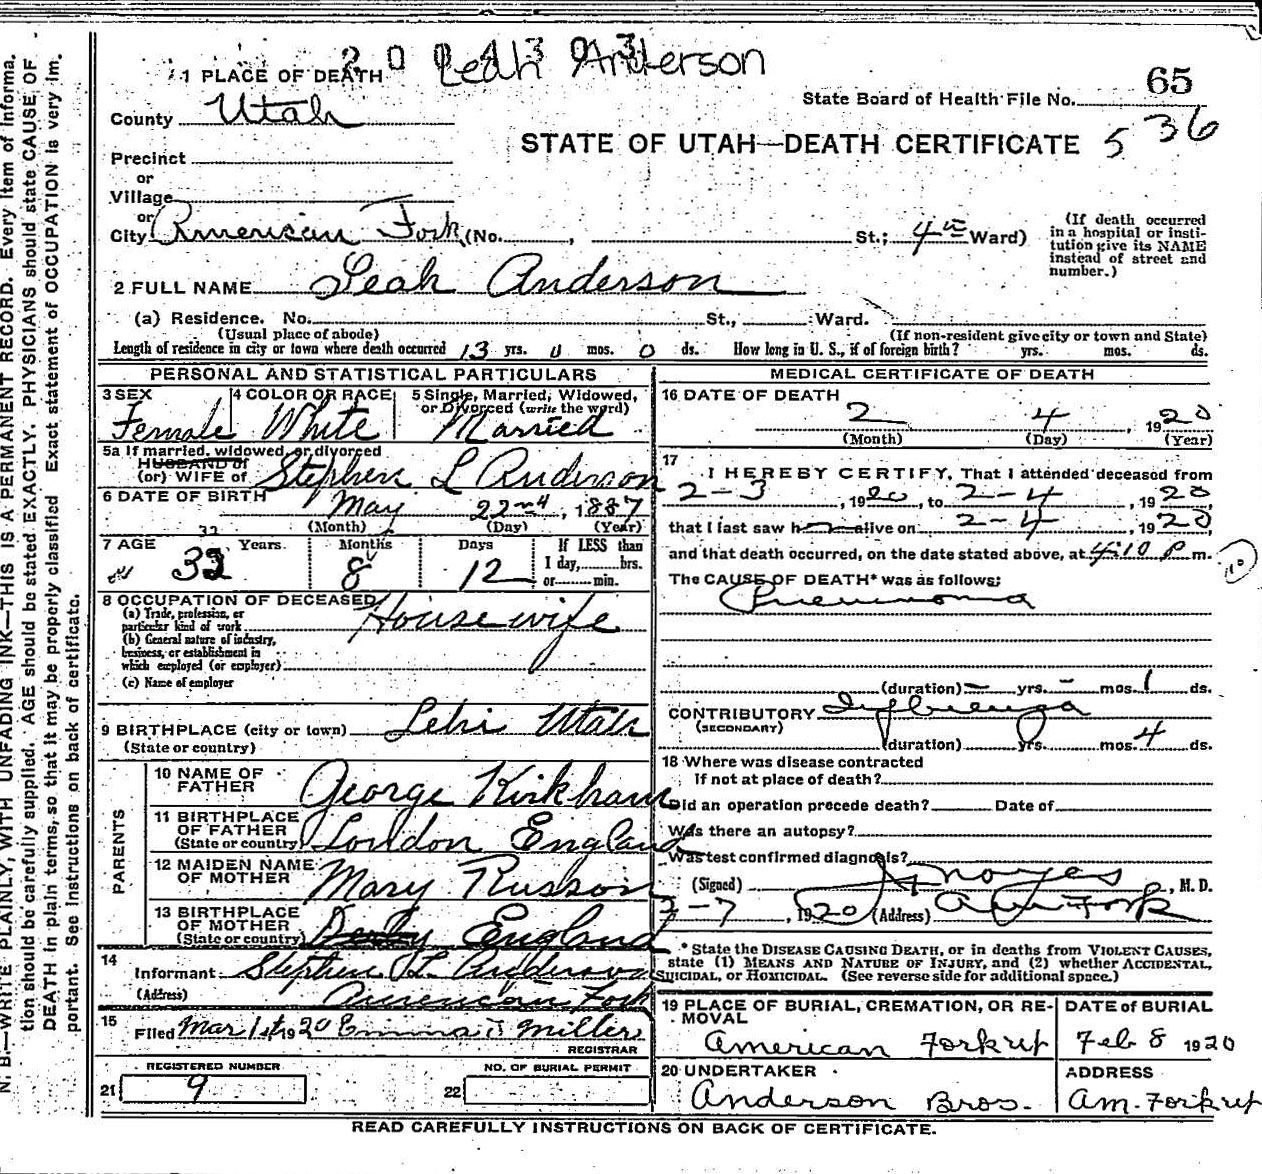 Leah Anderson
1 PLACE OF DEATH
65
State Board of Health File No.
County Utah
STATE OF UTAH—DEATH CERTIFICATE 536
Precinct
or
Village
or
City American Fork (No. , St.; 4th Ward)
(If death occurred in a hospital or insti-
tution give its NAME instead of street and number.)
2 FULL NAME Leah Anderson
(a) Residence. No. St., Ward.
(Usual place of abode) (If non-resident give city or town and State)
Length of residence in city or town where death occurred 13 yrs. 0 mos. 0 ds. How long in U. S., if of foreign birth? yrs. mos. ds.
PERSONAL AND STATISTICAL PARTICULARS
3 SEX Female
4 COLOR OR RACE White
5 Single, Married, Widowed, or Divorced (write the word) Married
5a If married, widowed, or divorced
HUSBAND of
(or) WIFE of Stephen L Anderson
6 DATE OF BIRTH May 22nd, 1887
(Month) (Day) (Year)
7 AGE 32 Years 8 Months 12 Days
If LESS than 1 day, hrs. or min.
8 OCCUPATION OF DECEASED
(a) Trade, profession, or particular kind of work Housewife
(b) General nature of industry, business, or establishment in which employed (or employer)
(c) Name of employer
9 BIRTHPLACE (city or town) Lehi Utah
(State or country)
PARENTS
10 NAME OF FATHER George Kirkham
11 BIRTHPLACE OF FATHER (State or country) London England
12 MAIDEN NAME OF MOTHER Mary Russon
13 BIRTHPLACE OF MOTHER (State or country) Derby England
14 Informant Stephen L. Anderson
(Address) American Fork
15 Filed Mar 1st, 1920 Emma J Miller
REGISTRAR
REGISTERED NUMBER
21 9
NO. OF BURIAL PERMIT
22
MEDICAL CERTIFICATE OF DEATH
16 DATE OF DEATH
2 4, 1920
(Month) (Day) (Year)
17 I HEREBY CERTIFY, That I attended deceased from
2-3, 1920, to 2-4, 1920
that I last saw h alive on 2-4, 1920
and that death occurred, on the date stated above, at 4:10 P m.
The CAUSE OF DEATH* was as follows:
Pneumonia
(duration) — yrs. - mos. 1 ds.
CONTRIBUTORY Influenza
(SECONDARY)
(duration) yrs. mos. 4 ds.
18 Where was disease contracted
If not at place of death?
Did an operation precede death? Date of
Was there an autopsy?
Was test confirmed diagnosis?
(Signed) Noyes, M. D.
2-7, 1920 (Address) Am Fork
*State the DISEASE CAUSING DEATH, or in deaths from VIOLENT CAUSES,
state (1) MEANS AND NATURE OF INJURY, and (2) whether ACCIDENTAL,
SUICIDAL, or HOMICIDAL. (See reverse side for additional space.)
19 PLACE OF BURIAL, CREMATION, OR RE-
MOVAL
American Fork ut
DATE of BURIAL
Feb 8 1920
20 UNDERTAKER
Anderson Bros.
ADDRESS
Am. Fork ut
READ CAREFULLY INSTRUCTIONS ON BACK OF CERTIFICATE.
N. B.—WRITE PLAINLY, WITH UNFADING INK—THIS IS A PERMANENT RECORD. Every item of informa-
tion should be carefully supplied. AGE should be stated EXACTLY. PHYSICIANS should state CAUSE OF
DEATH in plain terms, so that it may be properly classified. Exact statement of OCCUPATION is very im-
portant. See instructions on back of certificate.